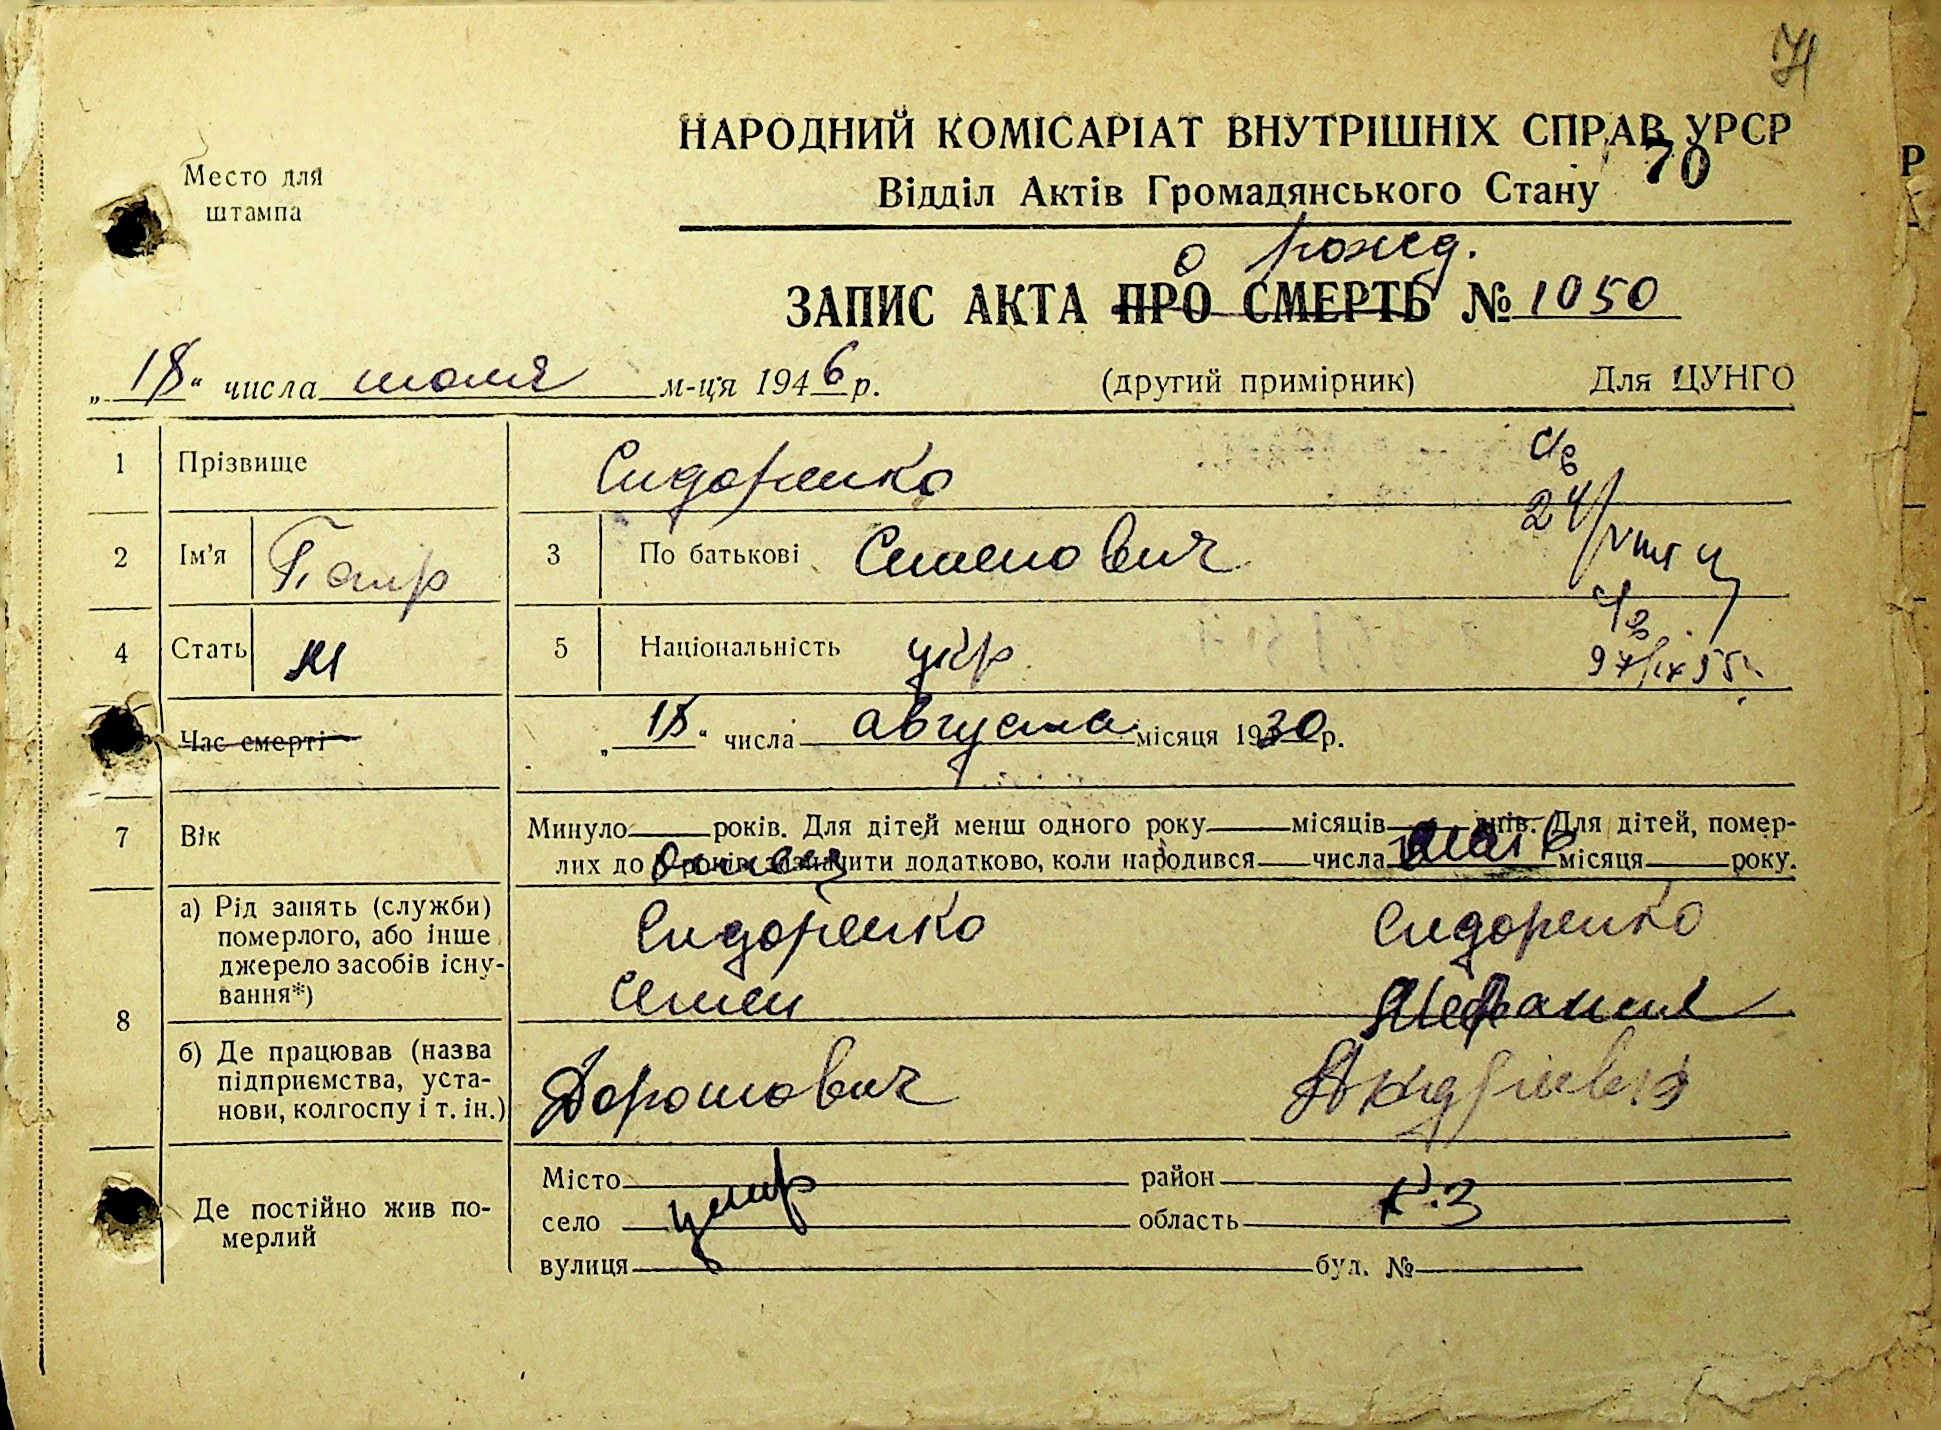 71
НАРОДНИЙ КОМІСАРІАТ ВНУТРІШНІХ СПРАВ УРСР
70
Место для
штампа
Відділ Актів Громадянського Стану
о рожд.
ЗАПИС АКТА ПРО СМЕРТЬ № 1050
„ 18 “ числа июля м-ця 1946 р. (другий примірник) Для ЦУНГО
1 Прізвище Сидоренко с/в
24/VIII
2 Ім'я Петр 3 По батькові Семенович
с/в
4 Стать м 5 Національність укр
Час смерті „ 18 “ числа августа місяця 1930 р.
7 Вік Минуло____років. Для дітей менш одного року____місяців____днів. Для дітей, помер-
лих до 5 років зазначити додатково, коли народився____числа____місяця____року.
отец мать
8 а) Рід занять (служби)
померлого, або інше
джерело засобів існу-
вання*)
Сидоренко Сидоренко
Семен Мефания
б) Де працював (назва
підприємства, уста-
нови, колгоспу і т. ін.)
Дорошович Андреевна
Де постійно жив по-
мерлий
Місто____район____
село____область____
вулиця____буд. №____